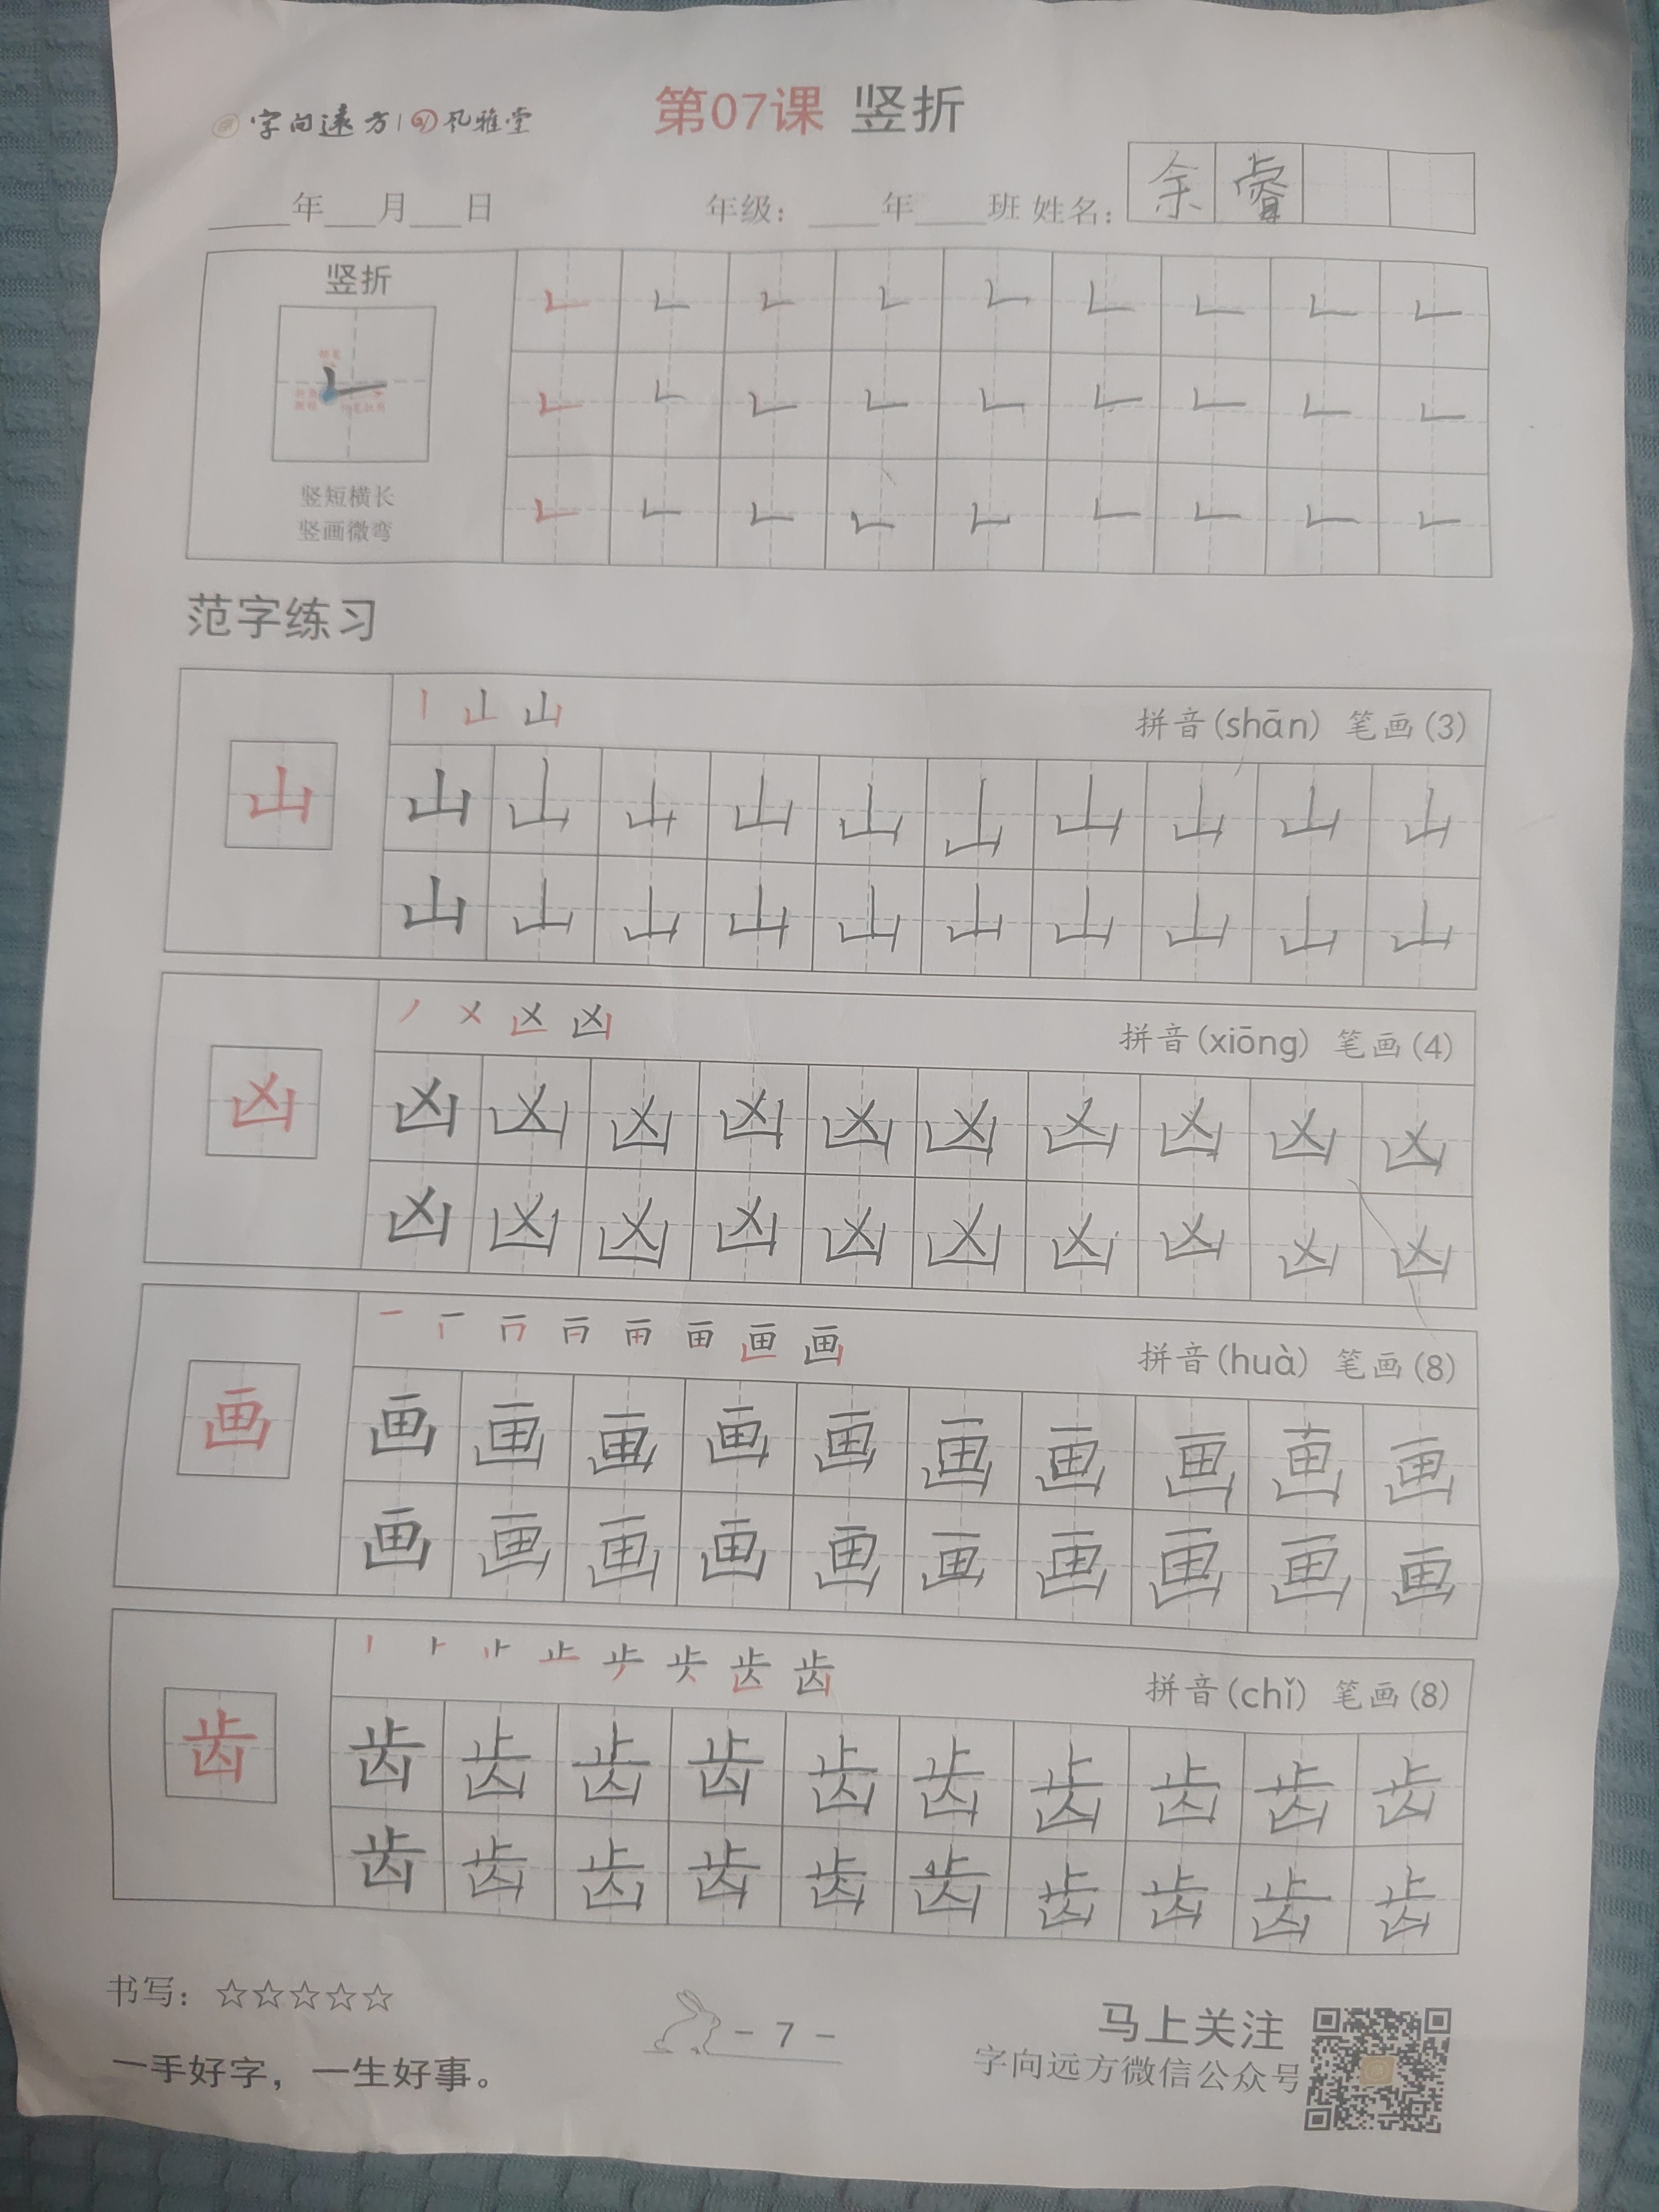 字向远方 风雅堂
第07课 竖折
年 月 日 年级： 年 班 姓名： 余 睿
竖折
竖短横长
竖画微弯
范字练习
山 拼音(shān) 笔画(3)
山
山 山 山 山 山 山 山 山 山 山
山 山 山 山 山 山 山 山 山 山
凶 拼音(xiōng) 笔画(4)
凶
凶 凶 凶 凶 凶 凶 凶 凶 凶 凶
凶 凶 凶 凶 凶 凶 凶 凶 凶 凶
画 拼音(huà) 笔画(8)
画
画 画 画 画 画 画 画 画 画 画
画 画 画 画 画 画 画 画 画 画
齿 拼音(chǐ) 笔画(8)
齿
齿 齿 齿 齿 齿 齿 齿 齿 齿 齿
齿 齿 齿 齿 齿 齿 齿 齿 齿 齿
书写：☆☆☆☆☆
一手好字，一生好事。
- 7 -
马上关注
字向远方微信公众号